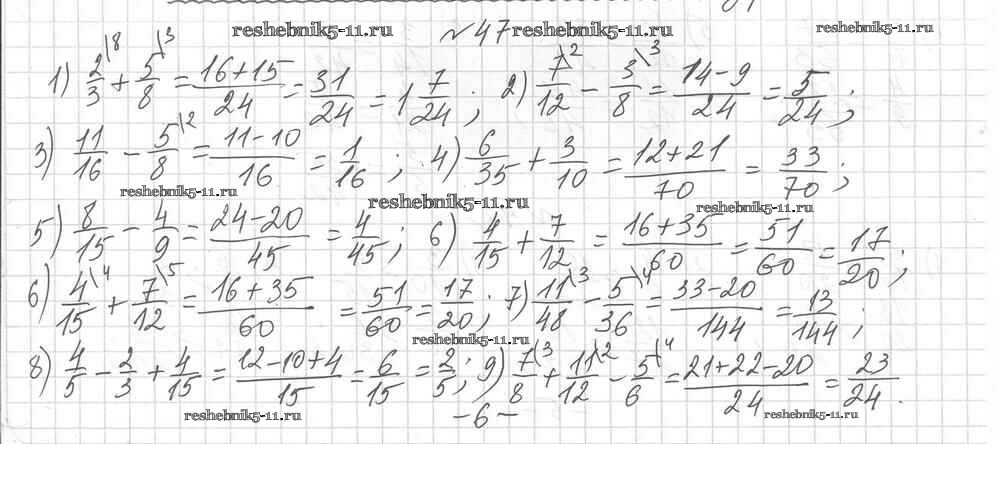 reshebnik5-11.ru №47 reshebnik5-11.ru reshebnik5-11.ru
1) 2/3\8 + 5/8\3 = (16+15)/24 = 31/24 = 1 7/24; 2) 7/12\2 - 3/8\3 = (14-9)/24 = 5/24;
3) 11/16 - 5/8\2 = (11-10)/16 = 1/16; 4) 6/35 + 3/10 = (12+21)/70 = 33/70;
reshebnik5-11.ru reshebnik5-11.ru reshebnik5-11.ru
5) 8/15 - 4/9 = (24-20)/45 = 4/45; 6) 4/15 + 7/12 = (16+35)/60 = 51/60 = 17/20;
6) 4/15\4 + 7/12\5 = (16+35)/60 = 51/60 = 17/20; 7) 11/48\3 - 5/36\4 = (33-20)/144 = 13/144;
reshebnik5-11.ru
8) 4/5 - 2/3 + 4/15 = (12-10+4)/15 = 6/15 = 2/5; 9) 7/8\3 + 11/12\2 - 5/6\4 = (21+22-20)/24 = 23/24.
reshebnik5-11.ru -6- reshebnik5-11.ru